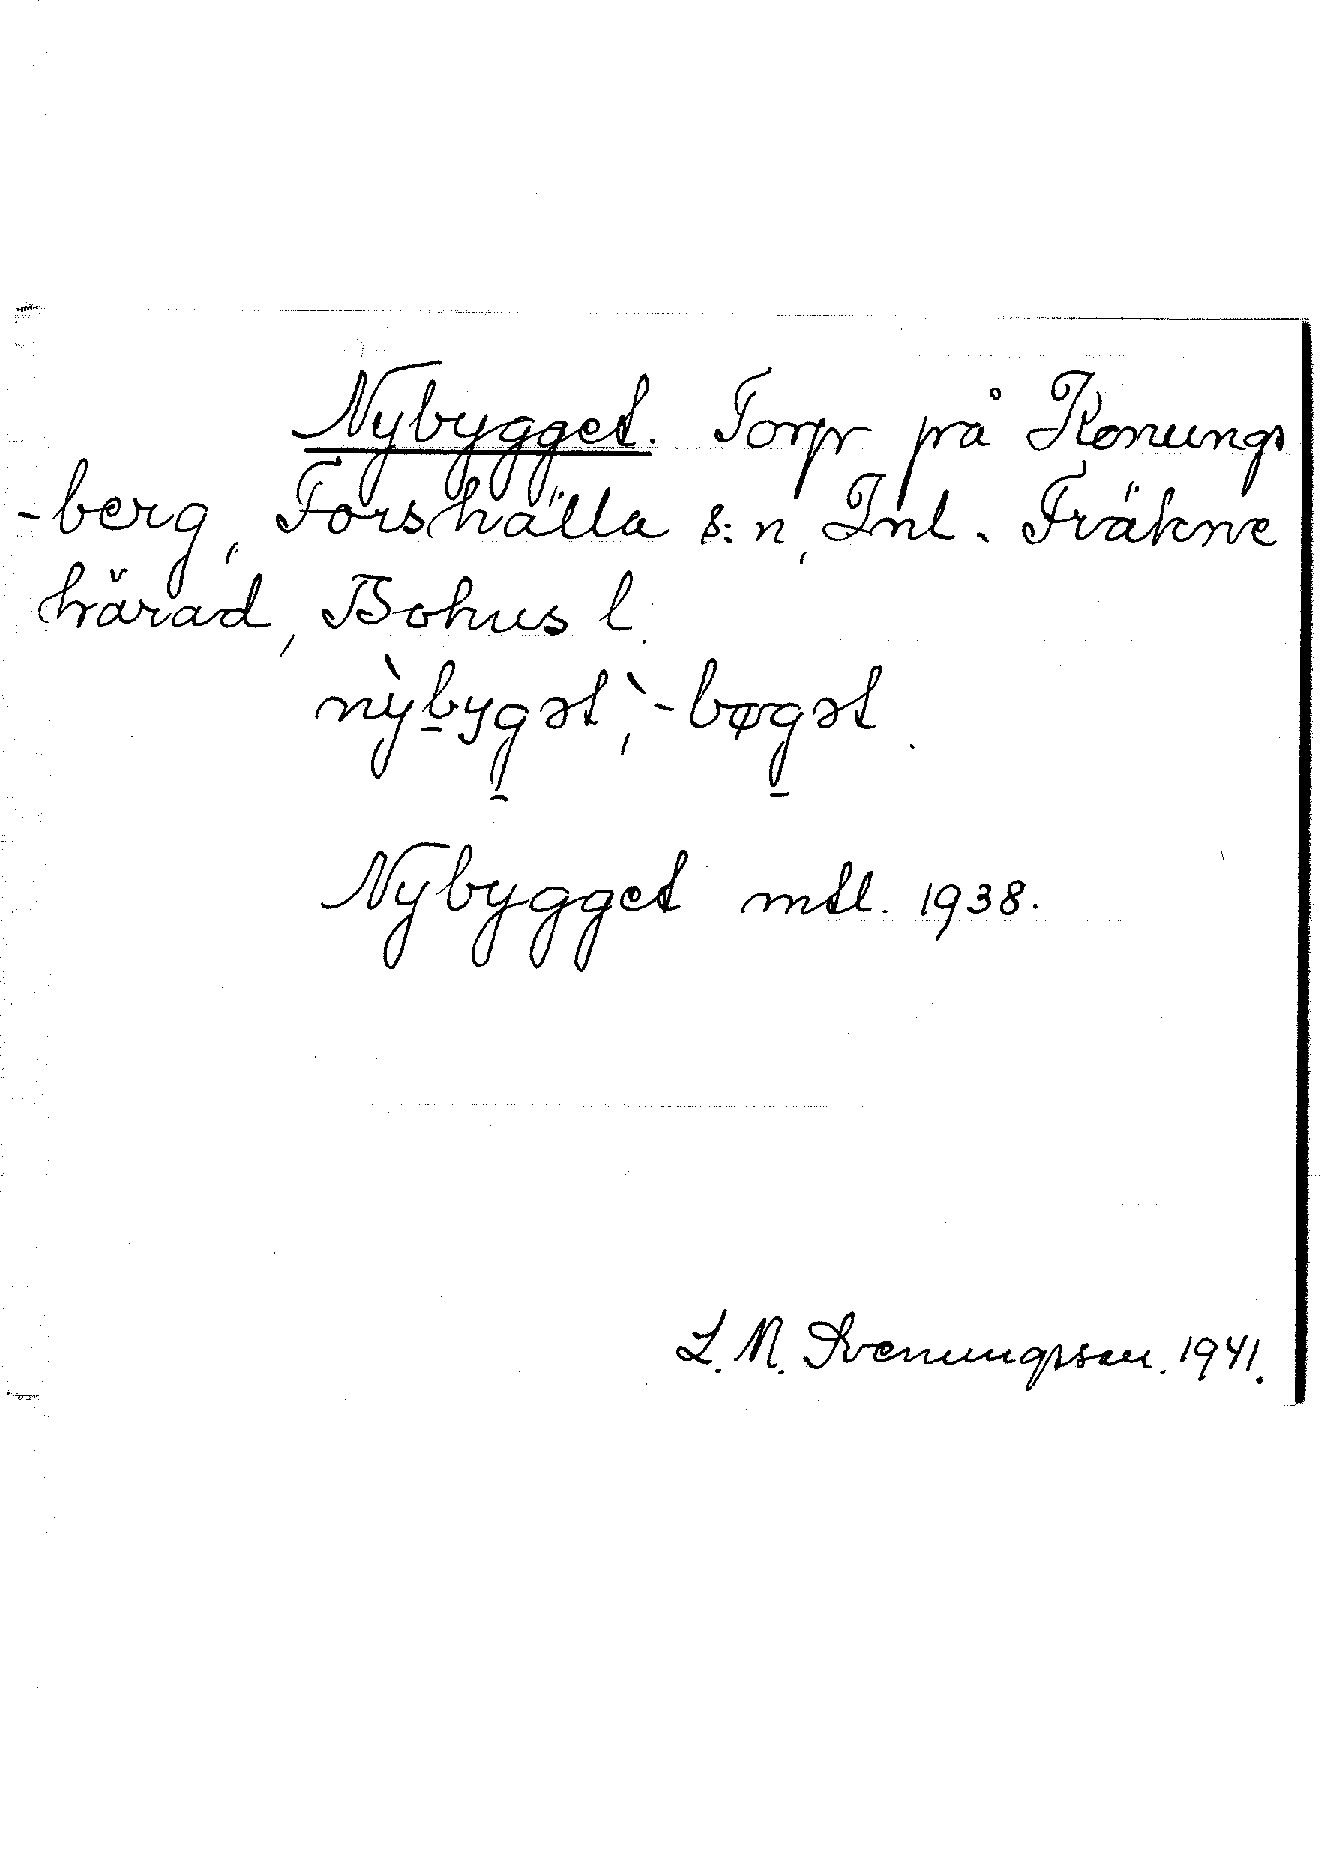 Nybygget. Torp på Konungs
-berg, Forshälla s:n, Inl. Fräkne
härad, Bohus l.
nỳbygət, -bøgət.
Nybygget mtl. 1938.
L. M. Svenungsson. 1941.